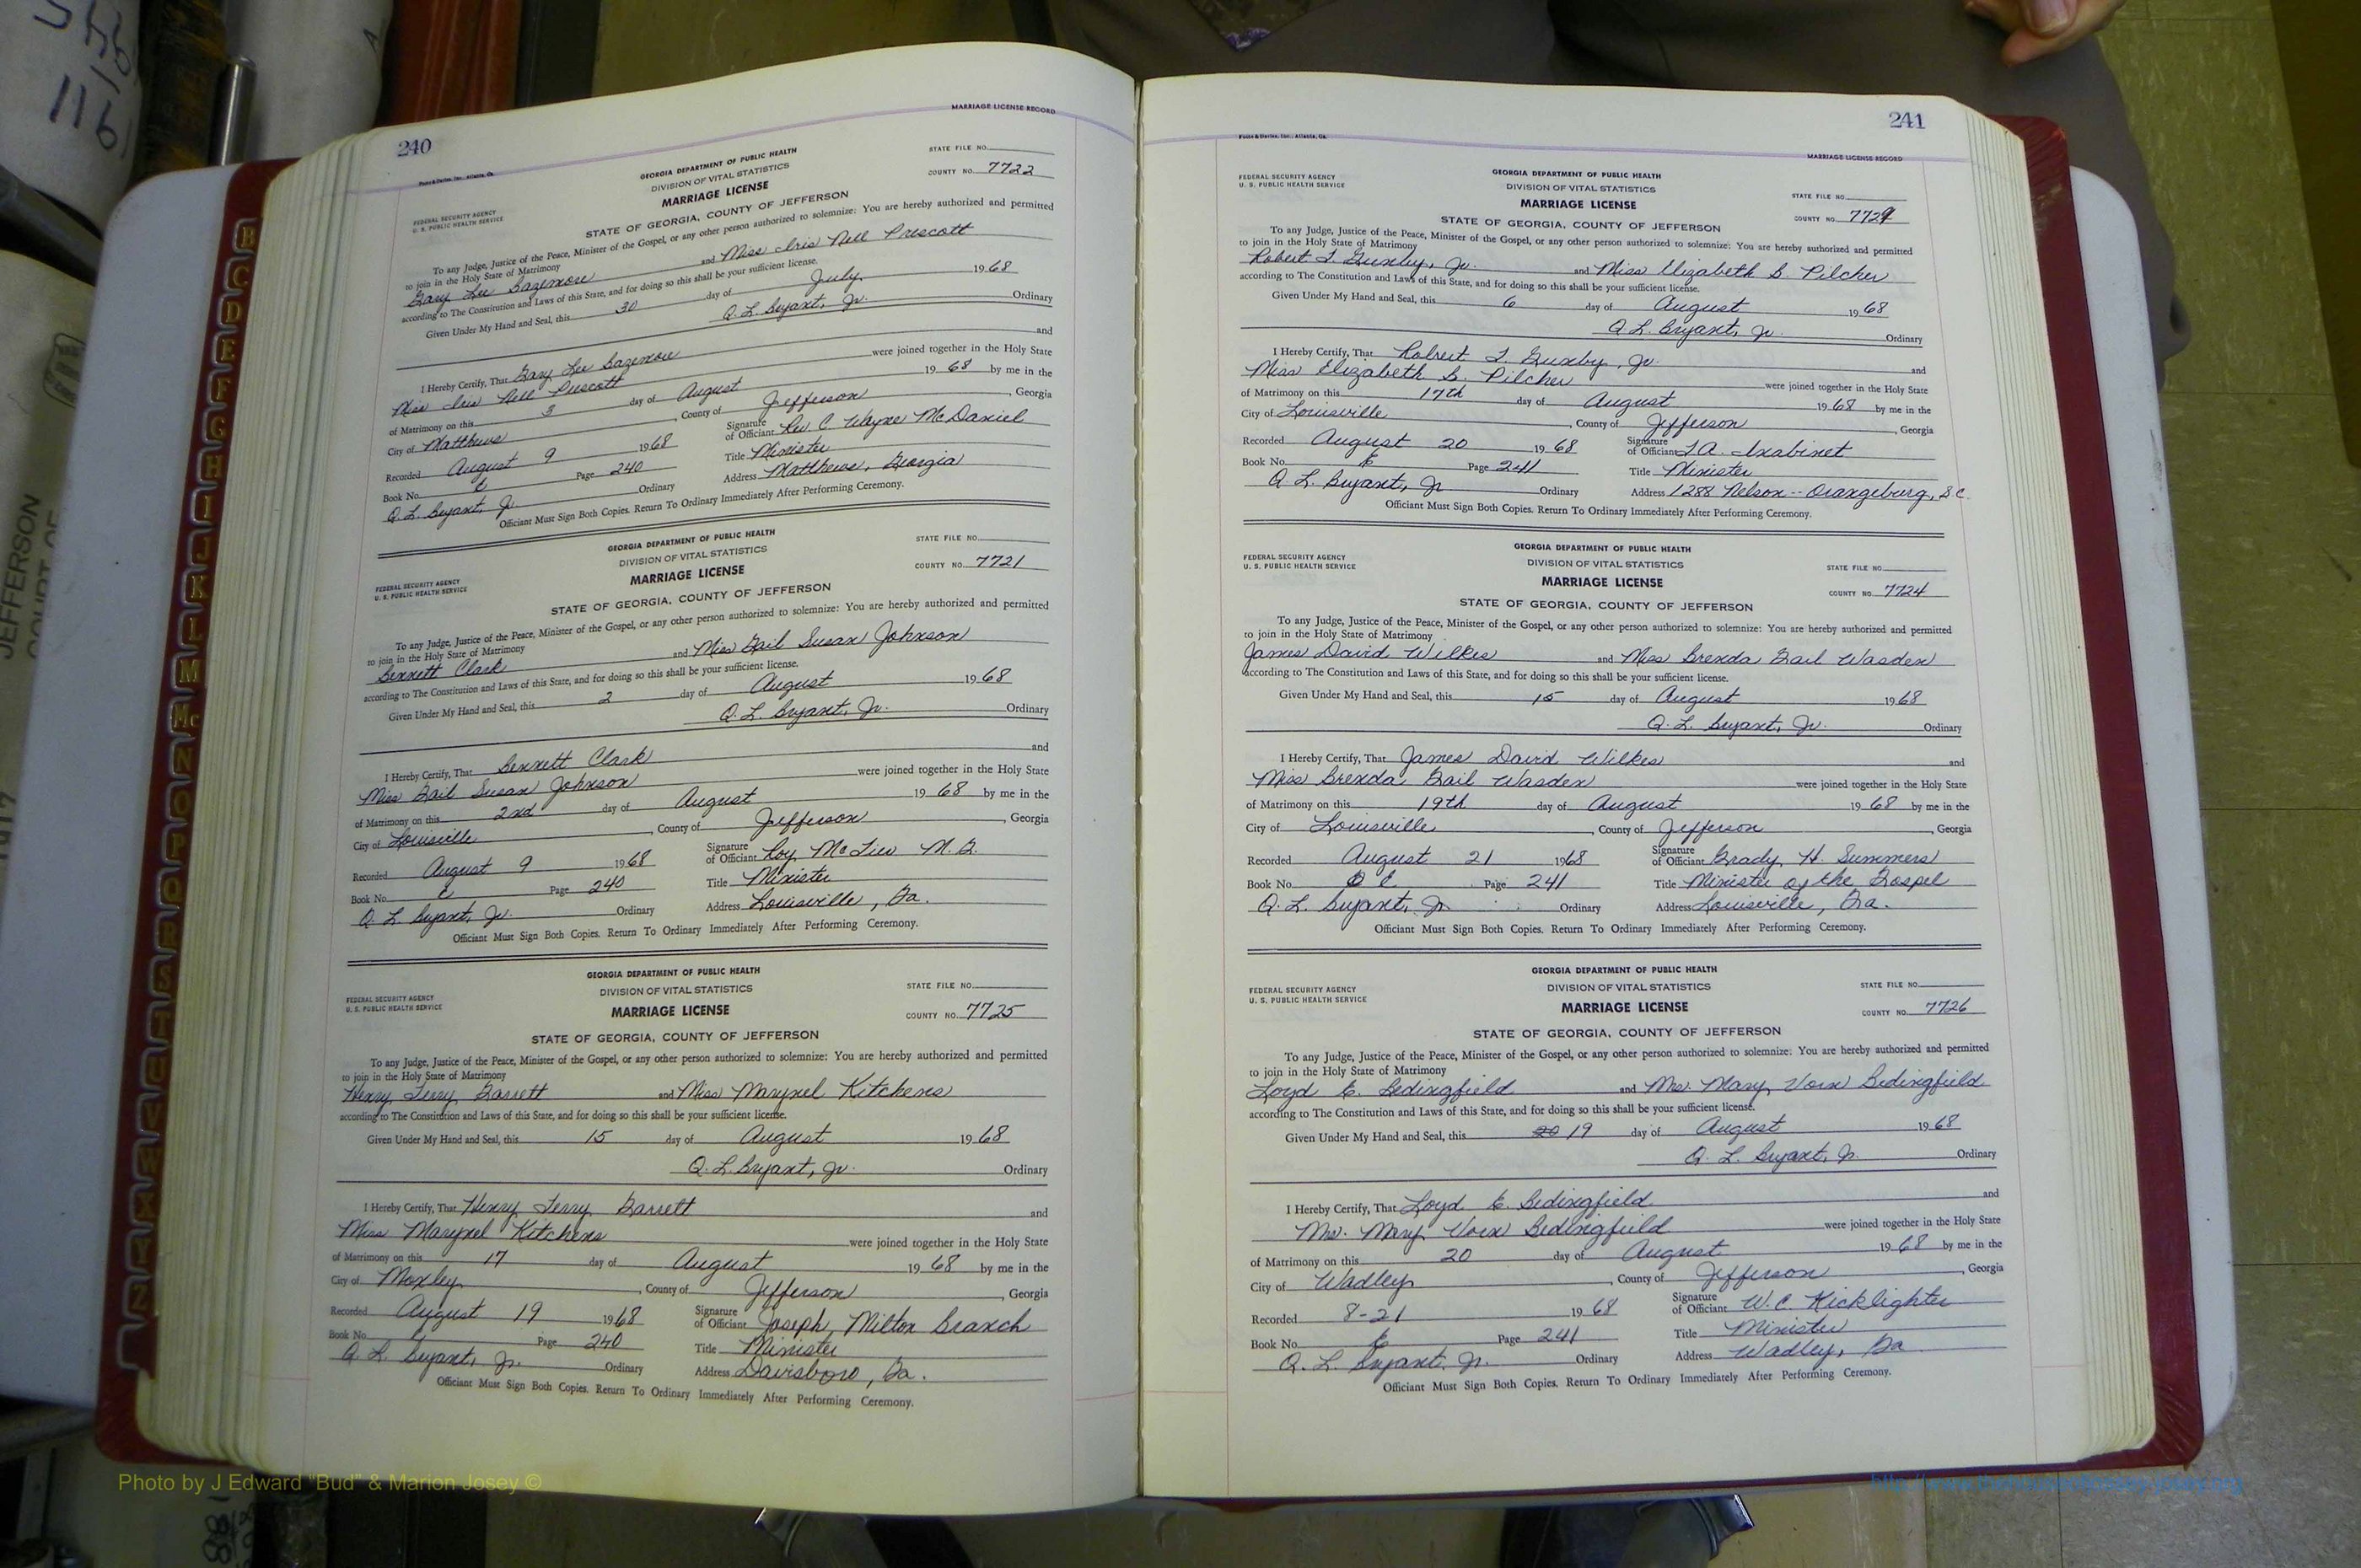 240
MARRIAGE LICENSE RECORD
Foote & Davies, Inc., Atlanta, Ga.
GEORGIA DEPARTMENT OF PUBLIC HEALTH
DIVISION OF VITAL STATISTICS
MARRIAGE LICENSE
STATE FILE NO.
COUNTY NO. 7722
FEDERAL SECURITY AGENCY
U. S. PUBLIC HEALTH SERVICE
STATE OF GEORGIA, COUNTY OF JEFFERSON
To any Judge, Justice of the Peace, Minister of the Gospel, or any other person authorized to solemnize: You are hereby authorized and permitted
to join in the Holy State of Matrimony
Gary Lee Bazemore and Miss Iris Nell Prescott
according to The Constitution and Laws of this State, and for doing so this shall be your sufficient license.
Given Under My Hand and Seal, this 30 day of July 1968
Q. L. Bryant, Jr. Ordinary
I Hereby Certify, That Gary Lee Bazemore and
Miss Iris Nell Prescott were joined together in the Holy State
of Matrimony on this 3 day of August 1968 by me in the
City of Matthews, County of Jefferson, Georgia
Recorded August 9 1968 Signature of Officiant Rev C Wayne McDaniel
Book No. E Page 240 Title Minister
Q. L. Bryant, Jr. Ordinary Address Matthews, Georgia
Officiant Must Sign Both Copies. Return To Ordinary Immediately After Performing Ceremony.
GEORGIA DEPARTMENT OF PUBLIC HEALTH
DIVISION OF VITAL STATISTICS
MARRIAGE LICENSE
STATE FILE NO.
COUNTY NO. 7721
FEDERAL SECURITY AGENCY
U. S. PUBLIC HEALTH SERVICE
STATE OF GEORGIA, COUNTY OF JEFFERSON
To any Judge, Justice of the Peace, Minister of the Gospel, or any other person authorized to solemnize: You are hereby authorized and permitted
to join in the Holy State of Matrimony
Bennett Clark and Miss Gail Susan Johnson
according to The Constitution and Laws of this State, and for doing so this shall be your sufficient license.
Given Under My Hand and Seal, this 2 day of August 1968
Q. L. Bryant, Jr. Ordinary
I Hereby Certify, That Bennett Clark and
Miss Gail Susan Johnson were joined together in the Holy State
of Matrimony on this 2nd day of August 1968 by me in the
City of Louisville, County of Jefferson, Georgia
Recorded August 9 1968 Signature of Officiant Roy McTier M. G.
Book No. E Page 240 Title Minister
Q. L. Bryant, Jr. Ordinary Address Louisville, Ga.
Officiant Must Sign Both Copies. Return To Ordinary Immediately After Performing Ceremony.
GEORGIA DEPARTMENT OF PUBLIC HEALTH
DIVISION OF VITAL STATISTICS
MARRIAGE LICENSE
STATE FILE NO.
COUNTY NO. 7725
FEDERAL SECURITY AGENCY
U. S. PUBLIC HEALTH SERVICE
STATE OF GEORGIA, COUNTY OF JEFFERSON
To any Judge, Justice of the Peace, Minister of the Gospel, or any other person authorized to solemnize: You are hereby authorized and permitted
to join in the Holy State of Matrimony
Henry Terry Garrett and Miss Marynel Kitchens
according to The Constitution and Laws of this State, and for doing so this shall be your sufficient license.
Given Under My Hand and Seal, this 15 day of August 1968
Q. L. Bryant, Jr. Ordinary
I Hereby Certify, That Henry Terry Garrett and
Miss Marynel Kitchens were joined together in the Holy State
of Matrimony on this 17 day of August 1968 by me in the
City of Moxley, County of Jefferson, Georgia
Recorded August 19 1968 Signature of Officiant Joseph Milton Branch
Book No. Page 240 Title Minister
Q. L. Bryant, Jr. Ordinary Address Davisboro, Ga.
Officiant Must Sign Both Copies. Return To Ordinary Immediately After Performing Ceremony.
241
Foote & Davies, Inc., Atlanta, Ga.
MARRIAGE LICENSE RECORD
FEDERAL SECURITY AGENCY
U. S. PUBLIC HEALTH SERVICE
GEORGIA DEPARTMENT OF PUBLIC HEALTH
DIVISION OF VITAL STATISTICS
MARRIAGE LICENSE
STATE FILE NO.
COUNTY NO.
STATE OF GEORGIA, COUNTY OF JEFFERSON
To any Judge, Justice of the Peace, Minister of the Gospel, or any other person authorized to solemnize: You are hereby authorized and permitted
to join in the Holy State of Matrimony
Robert and Miss Elizabeth S. Pilcher
according to The Constitution and Laws of this State, and for doing so this shall be your sufficient license.
Given Under My Hand and Seal, this 6 day of August 1968
Q. L. Bryant, Jr. Ordinary
I Hereby Certify, That Robert Jr. and
Miss Elizabeth S. Pilcher were joined together in the Holy State
of Matrimony on this 17th day of August 1968 by me in the
City of Louisville, County of Jefferson, Georgia
Recorded August 20 1968 Signature of Officiant
Book No. E Page 241 Title Minister
Q. L. Bryant, Jr Ordinary Address 1288 Nelson -- Orangeburg, S C.
Officiant Must Sign Both Copies. Return To Ordinary Immediately After Performing Ceremony.
GEORGIA DEPARTMENT OF PUBLIC HEALTH
DIVISION OF VITAL STATISTICS
MARRIAGE LICENSE
FEDERAL SECURITY AGENCY
U. S. PUBLIC HEALTH SERVICE
STATE FILE NO.
COUNTY NO. 7724
STATE OF GEORGIA, COUNTY OF JEFFERSON
To any Judge, Justice of the Peace, Minister of the Gospel, or any other person authorized to solemnize: You are hereby authorized and permitted
to join in the Holy State of Matrimony
James David Wilkes and Miss Brenda Gail Wasden
according to The Constitution and Laws of this State, and for doing so this shall be your sufficient license.
Given Under My Hand and Seal, this 15 day of August 1968
Q. L. Bryant, Jr. Ordinary
I Hereby Certify, That James David Wilkes and
Miss Brenda Gail Wasden were joined together in the Holy State
of Matrimony on this 19th day of August 1968 by me in the
City of Louisville, County of Jefferson, Georgia
Recorded August 21 1968 Signature of Officiant Grady H. Summers
Book No. E Page 241 Title Minister of the Gospel
Q. L. Bryant, Jr. Ordinary Address Louisville, Ga.
Officiant Must Sign Both Copies. Return To Ordinary Immediately After Performing Ceremony.
GEORGIA DEPARTMENT OF PUBLIC HEALTH
DIVISION OF VITAL STATISTICS
MARRIAGE LICENSE
FEDERAL SECURITY AGENCY
U. S. PUBLIC HEALTH SERVICE
STATE FILE NO.
COUNTY NO. 7726
STATE OF GEORGIA, COUNTY OF JEFFERSON
To any Judge, Justice of the Peace, Minister of the Gospel, or any other person authorized to solemnize: You are hereby authorized and permitted
to join in the Holy State of Matrimony
Loyd E. Bedingfield and Mrs. Mary Bedingfield
according to The Constitution and Laws of this State, and for doing so this shall be your sufficient license.
Given Under My Hand and Seal, this 20 19 day of August 1968
Q. L. Bryant, Jr. Ordinary
I Hereby Certify, That Loyd E. Bedingfield and
Mrs. Mary Bedingfield were joined together in the Holy State
of Matrimony on this 20 day of August 1968 by me in the
City of Wadley, County of Jefferson, Georgia
Recorded 8-21 1968 Signature of Officiant W. C. Kicklighter
Book No. E Page 241 Title Minister
Q. L. Bryant, Jr. Ordinary Address Wadley, Ga
Officiant Must Sign Both Copies. Return To Ordinary Immediately After Performing Ceremony.
B
C
D
E
F
G
H
I
J
K
L
M
Mc
N
O
P
Q
R
S
T
U
V
W
X
Y
Z
JEFFERSON
Photo by J Edward "Bud" & Marion Josey ©